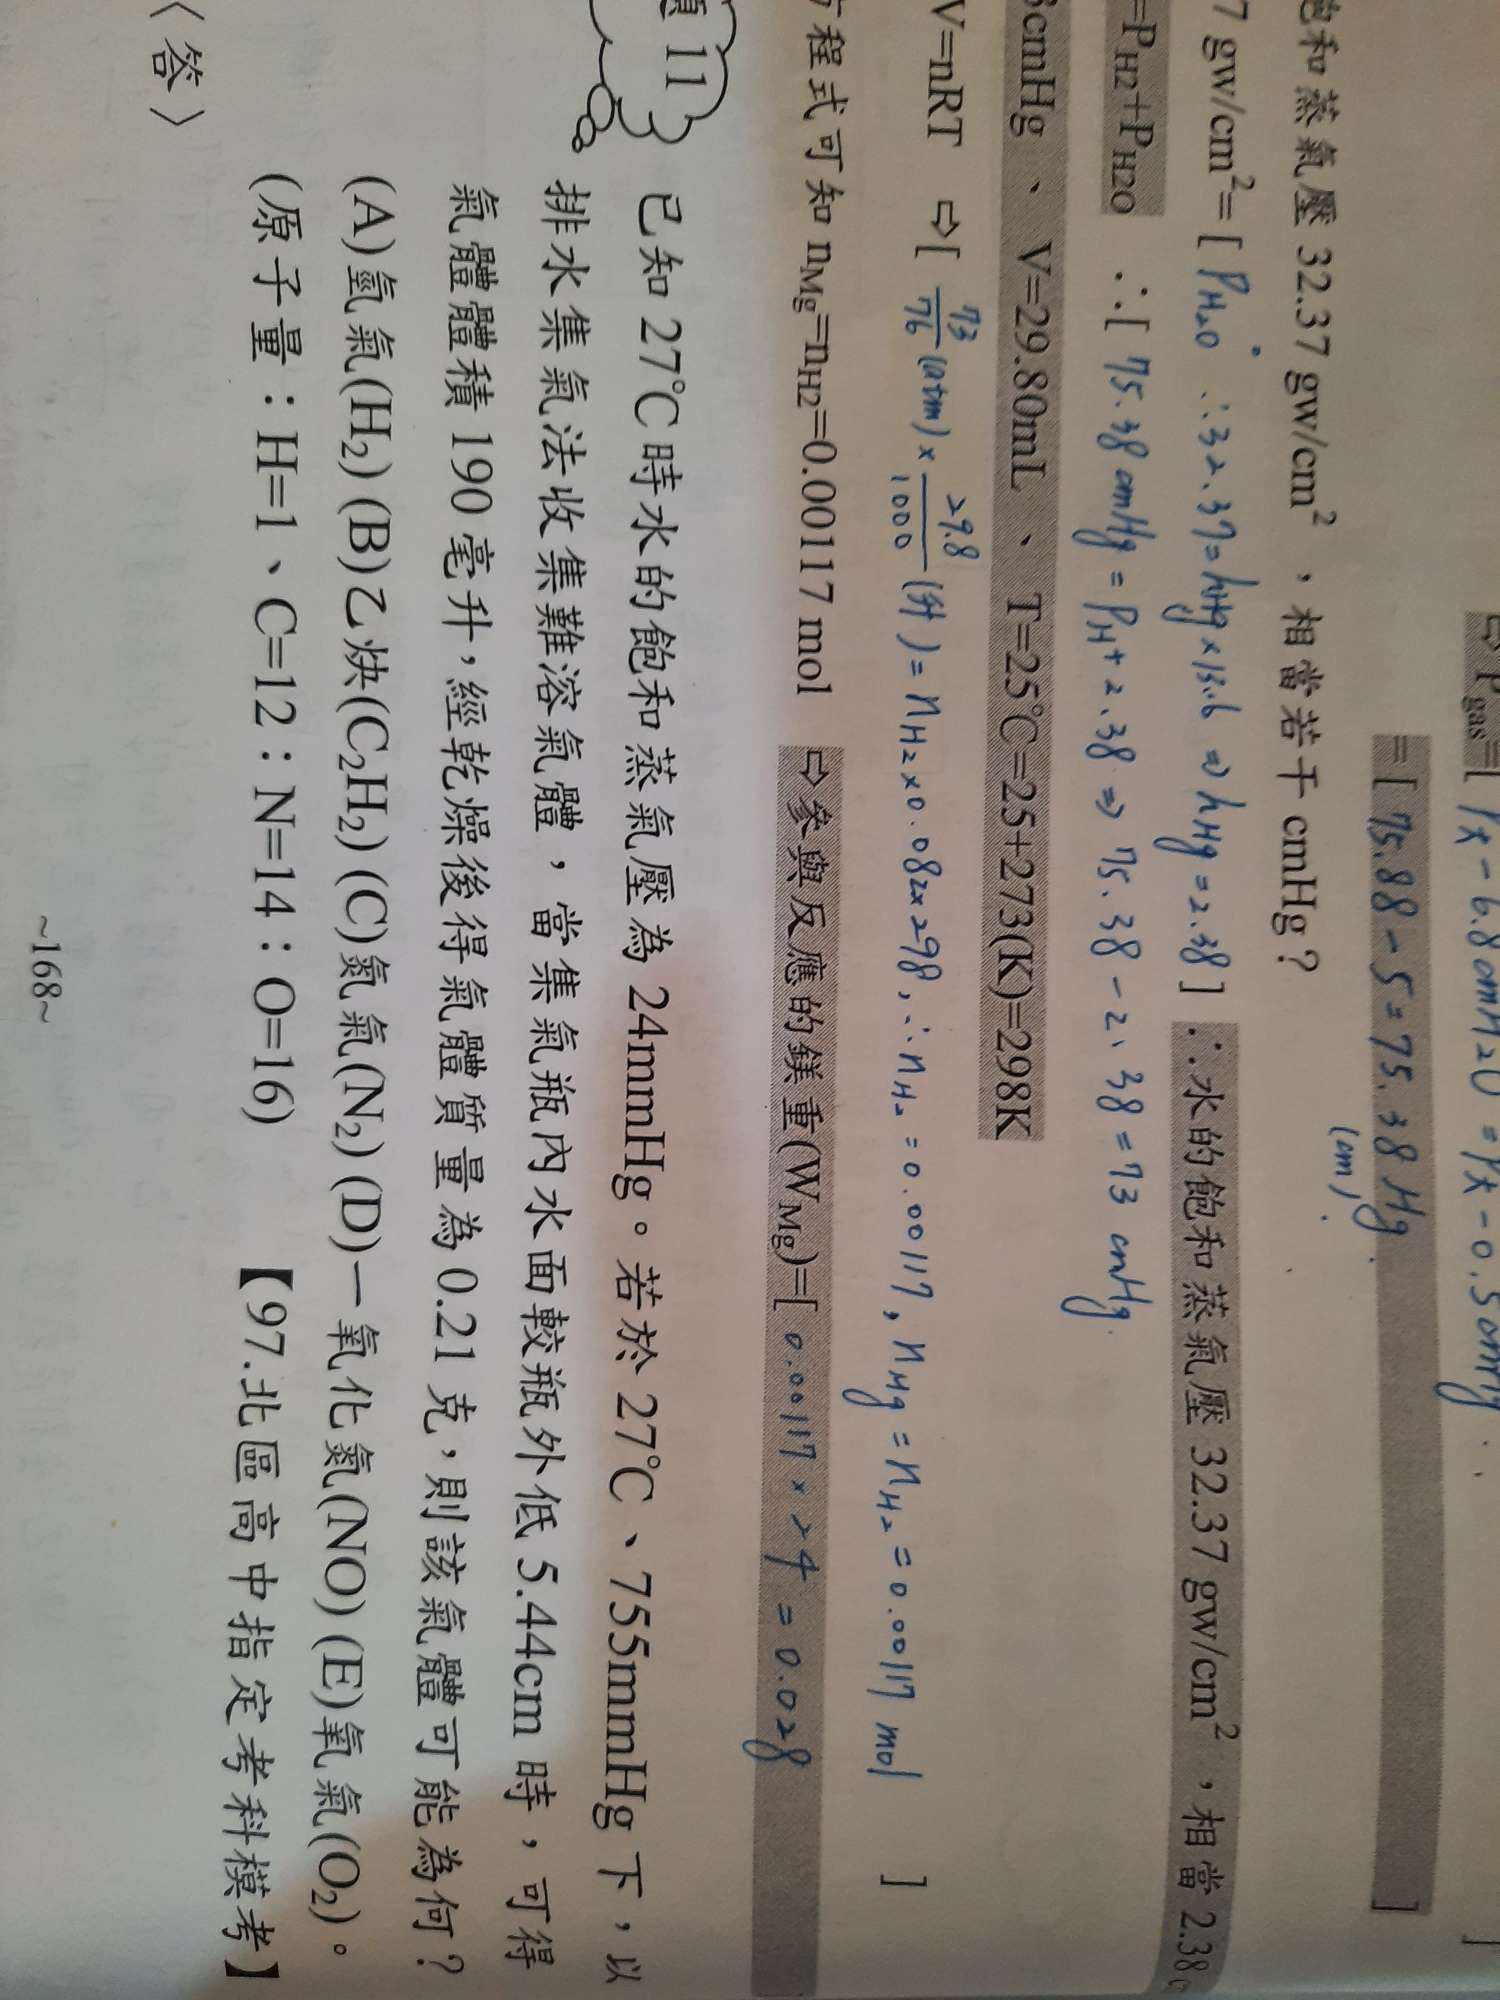 ⇨Pgas=[ P大-6.8cmH2O = P大-0.5cmHg. ]
=[ 75.88-5=75.38 Hg. ]
(cm)
飽和蒸氣壓 32.37 gw/cm²,相當若干 cmHg?
7 gw/cm²=[ P°H2O ∴32.37=hHg×13.6 ⇒hHg=2.38 ] ∴水的飽和蒸氣壓 32.37 gw/cm²,相當 2.38
=PH2+PH2O ∴[ 75.38 cmHg = PH+2.38 ⇒ 75.38-2.38=73 cmHg.
3cmHg、 V=29.80mL、 T=25℃=25+273(K)=298K
V=nRT ⇨[ 73/76 (atm)×29.8/1000 (升)=nH2×0.082×298, ∴nH2=0.00117, nMg=nH2=0.00117 mol ]
方程式可知 nMg=nH2=0.00117 mol ⇨參與反應的鎂重(WMg)=[ 0.00117×24=0.028 ]
題 11 已知 27℃時水的飽和蒸氣壓為 24mmHg。若於 27℃、755mmHg 下,以
排水集氣法收集難溶氣體,當集氣瓶內水面較瓶外低 5.44cm 時,可得
氣體體積 190 毫升,經乾燥後得氣體質量為 0.21 克,則該氣體可能為何?
(A)氫氣(H2) (B)乙炔(C2H2) (C)氮氣(N2) (D)一氧化氮(NO) (E)氧氣(O2)。
(原子量:H=1、C=12:N=14:O=16) 【97.北區高中指定考科模考】
〈答〉
~168~